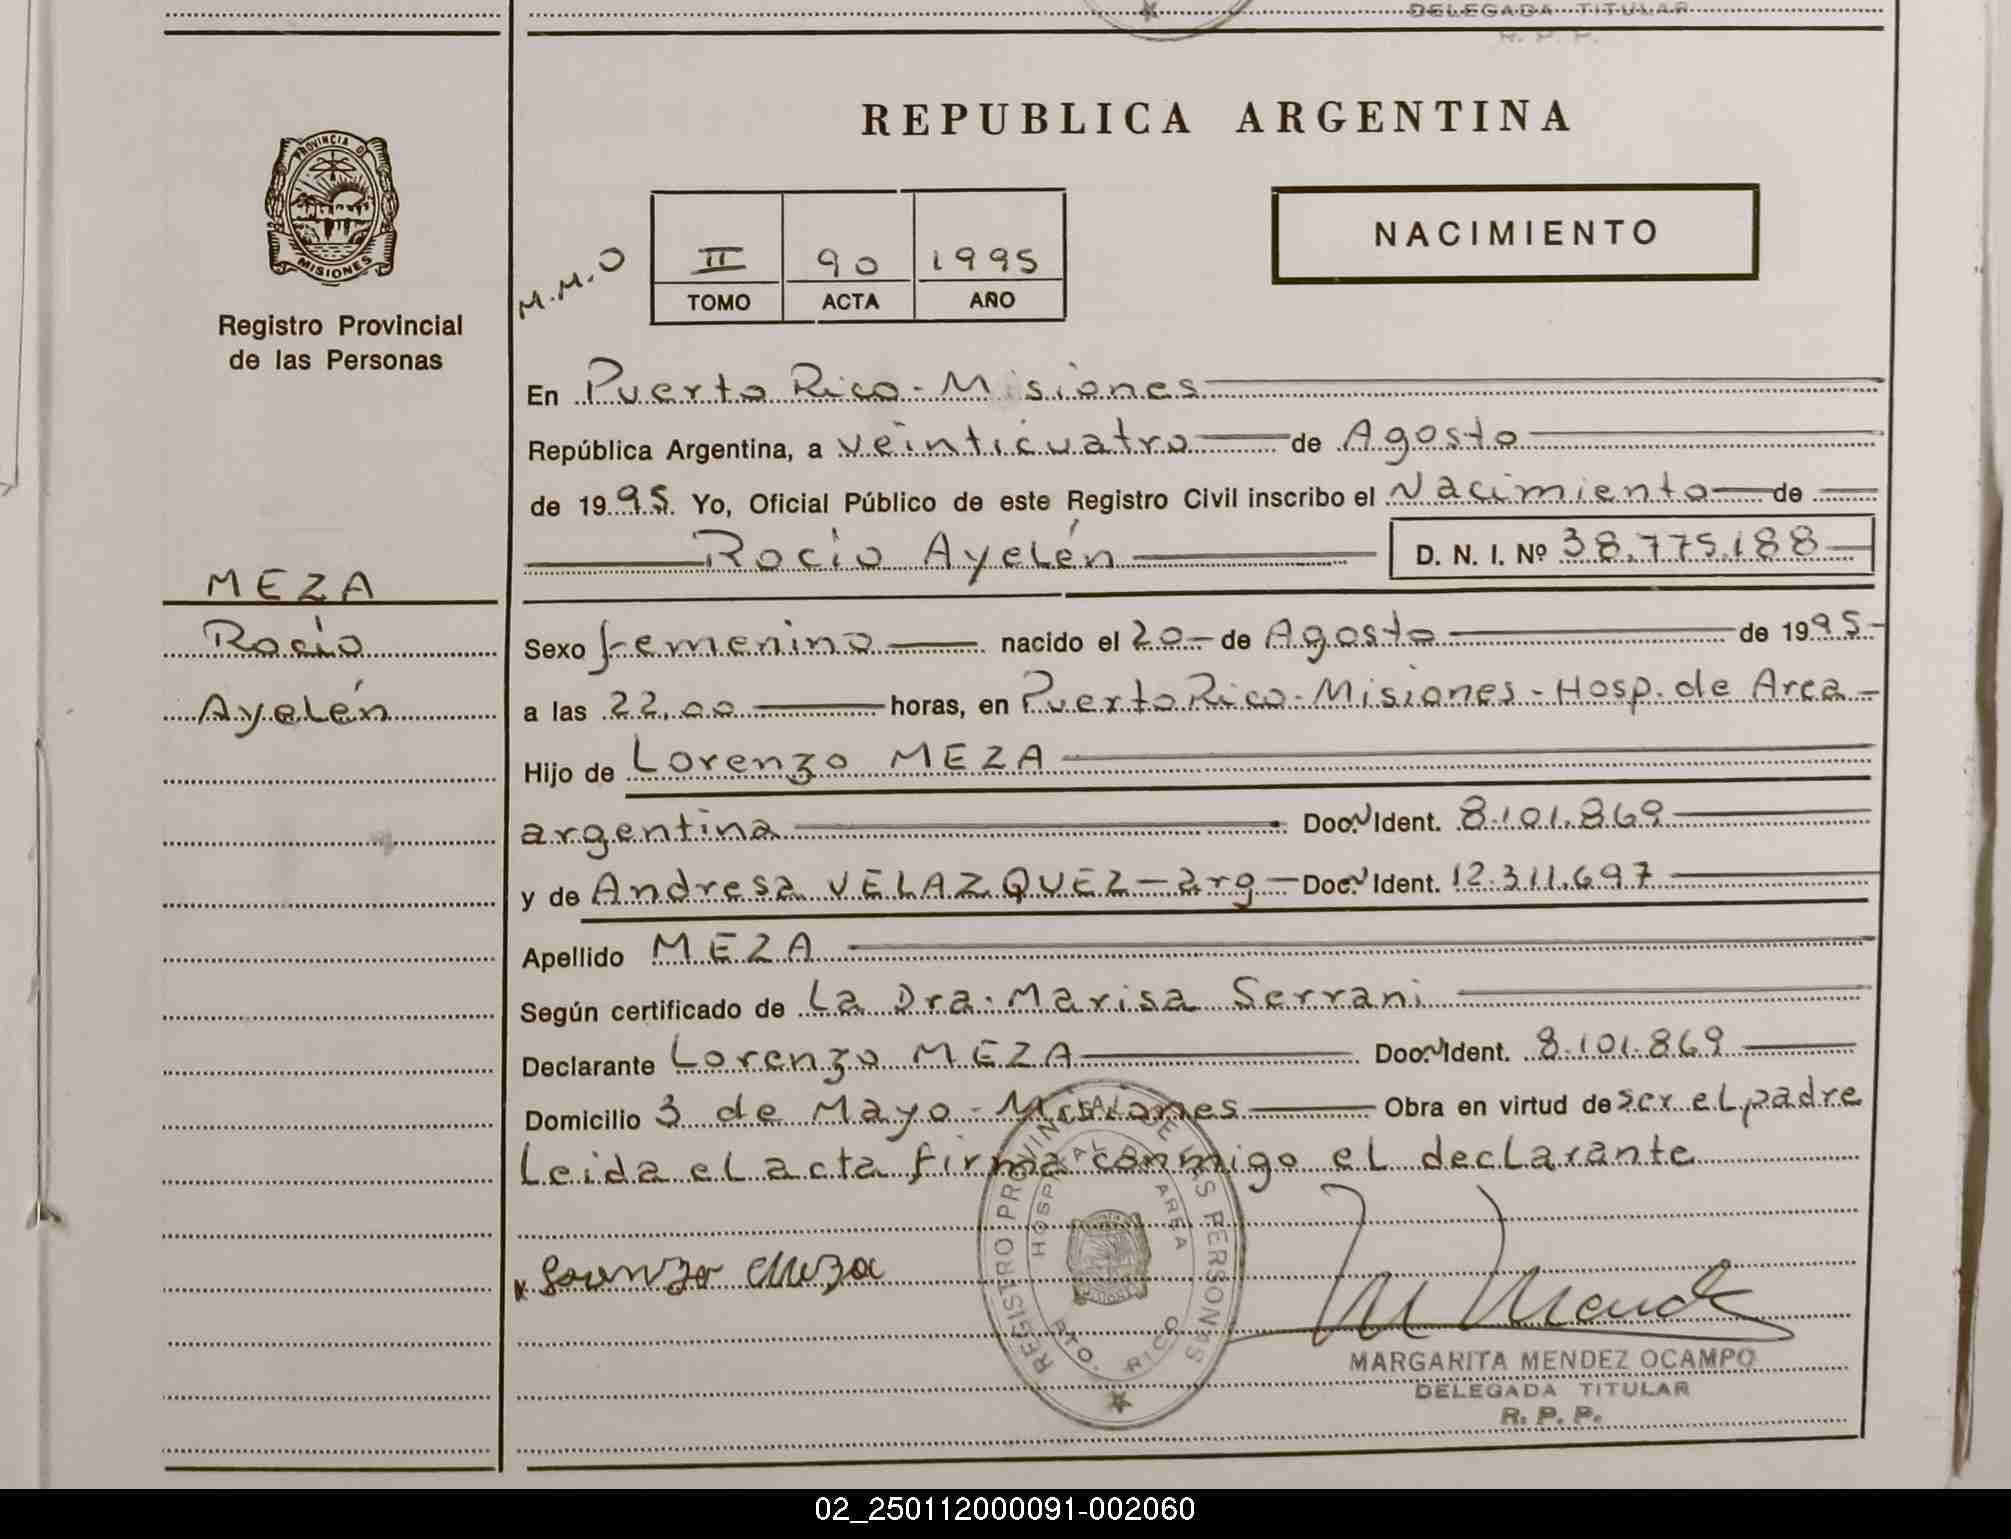 DELEGADA TITULAR
R. P. P.
REPUBLICA ARGENTINA
PROVINCIA D
MISIONES
NACIMIENTO
M.M.O
II 90 1995
TOMO ACTA AÑO
Registro Provincial
de las Personas
En Puerto Rico - Misiones
República Argentina, a veinticuatro de Agosto
de 1995. Yo, Oficial Público de este Registro Civil inscribo el Nacimiento de
Rocío Ayelén D. N. I. Nº 38.775.188
MEZA
Rocío
Ayelén
Sexo femenino nacido el 20 de Agosto de 1995
a las 22.00 horas, en Puerto Rico - Misiones - Hosp. de Area
Hijo de Lorenzo MEZA
argentina Doc. Ident. 8.101.869
y de Andresa VELAZQUEZ - arg - Doc. Ident. 12.311.697
Apellido MEZA
Según certificado de La Dra. Marisa Serrani
Declarante Lorenzo MEZA Doc. Ident. 8.101.869
Domicilio 3 de Mayo - Misiones Obra en virtud de ser el padre
Leida el acta firma conmigo el declarante
REGISTRO PROVINCIAL DE LAS PERSONAS
HOSPITAL DE AREA
PTO. RICO
Lorenzo Meza
M Mendez
MARGARITA MENDEZ OCAMPO
DELEGADA TITULAR
R. P. P.
02_250112000091-002060